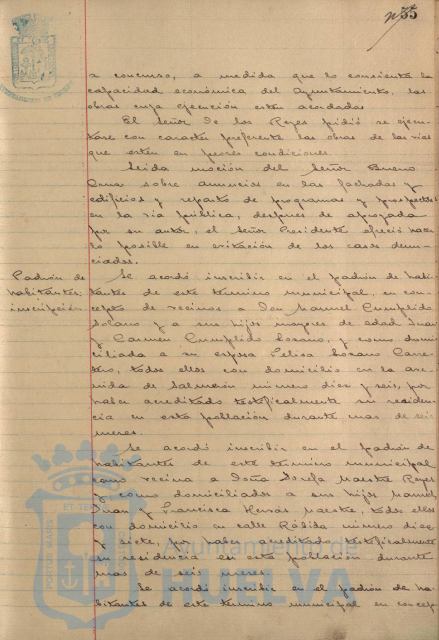 35
a concurso, a medida que lo consienta la
capacidad económica del Ayuntamiento, las
obras cuya ejecución estén acordadas
El Señor de los Reyes pidió se ejecu-
tase con carácter preferente las obras de las vías
que estén en peores condiciones.
Leida moción del Señor Bueno
sobre anuncios en las fachadas y
edificios y reparto de programas y prospectos
en la vía pública, después de apoyada
por su autor, el Señor Presidente ofreció hacer
lo posible en evitación de los casos denun-
ciados.
Padrón de
habitantes:
inscripción.
Se acordó inscribir en el padrón de habi-
tantes de este término municipal, en con-
cepto de vecinos a Don Manuel Cumplido
Solano y a sus hijos mayores de edad Juan
y Carmen Cumplido Lozano, y como domi-
ciliada a su esposa Felisa Lozano
todos ellos con domicilio en la ave-
nida de número diez y seis, por
haber acreditado testificalmente su residen-
cia en esta población durante mas de seis
meses.
Se acordó inscribir en el padrón de
habitantes de este término municipal
como vecina a Doña Josefa Maestre Reyes
y como domiciliados a sus hijos Manuel
Juan y Francisca Maestre, todos ellos
con domicilio en calle Rábida número diez
y siete, por haber acreditado testificalmente
su residencia en esta población durante
mas de seis meses.
Se acordó inscribir en el padrón de ha-
bitantes de este término municipal en concep
Ayuntamiento de
HUELVA